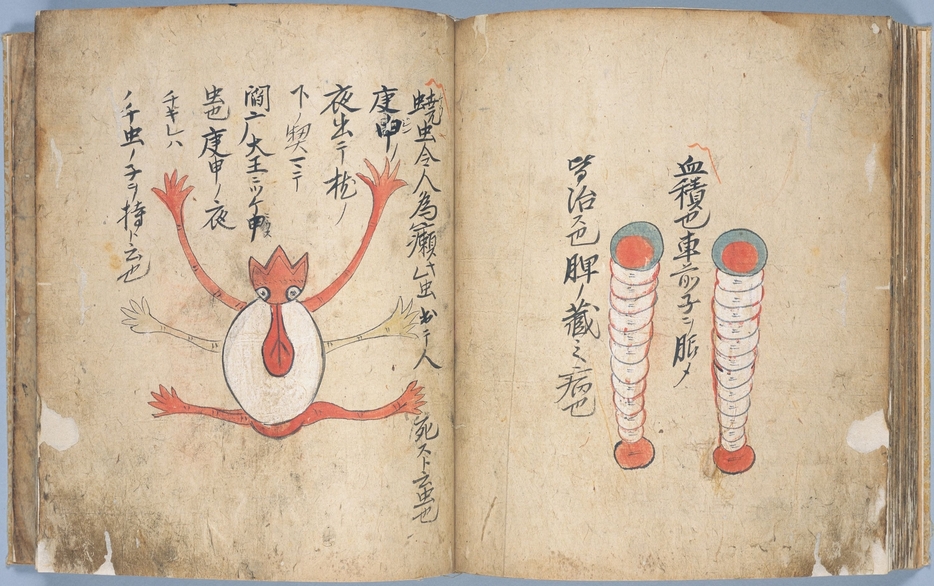 血積也車前子ニ脈メ
皆治ス也脾ノ蔵ニ病也
蟯虫令人為癩此虫出テ人死スト云虫也
庚申ノ
夜出テ枕ノ
下ノ契マテ
閻广大王ニツケ申
虫也庚申ノ夜
チギレハ
ノチ虫ノ子ヲ持ト云也